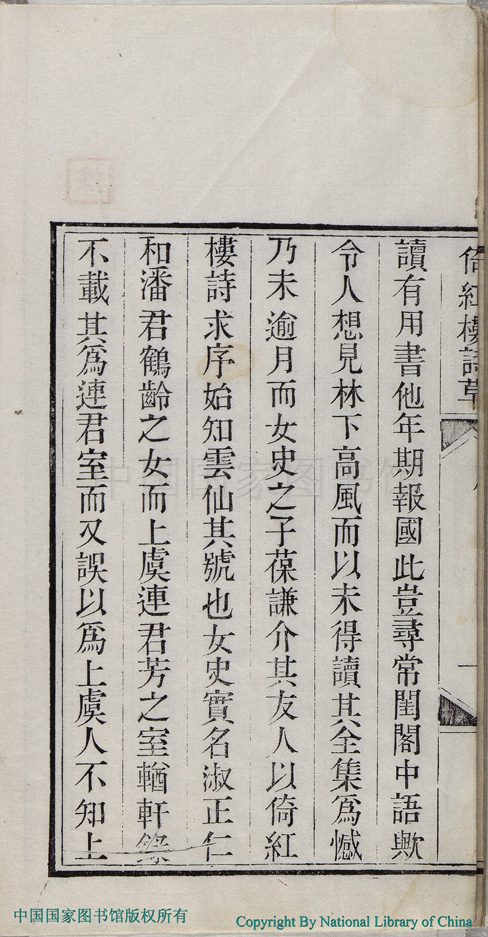 倚紅樓詩草
讀有用書他年期報國此豈尋常閨閣中語歟
令人想見林下高風而以未得讀其全集爲憾
乃未逾月而女史之子葆謙介其友人以倚紅
樓詩求序始知雲仙其號也女史實名淑正仁
和潘君鶴齡之女而上虞連君芳之室輶軒錄
不載其爲連君室而又誤以爲上虞人不知上
中国国家图书馆
中国国家图书馆版权所有
Copyright By National Library of China